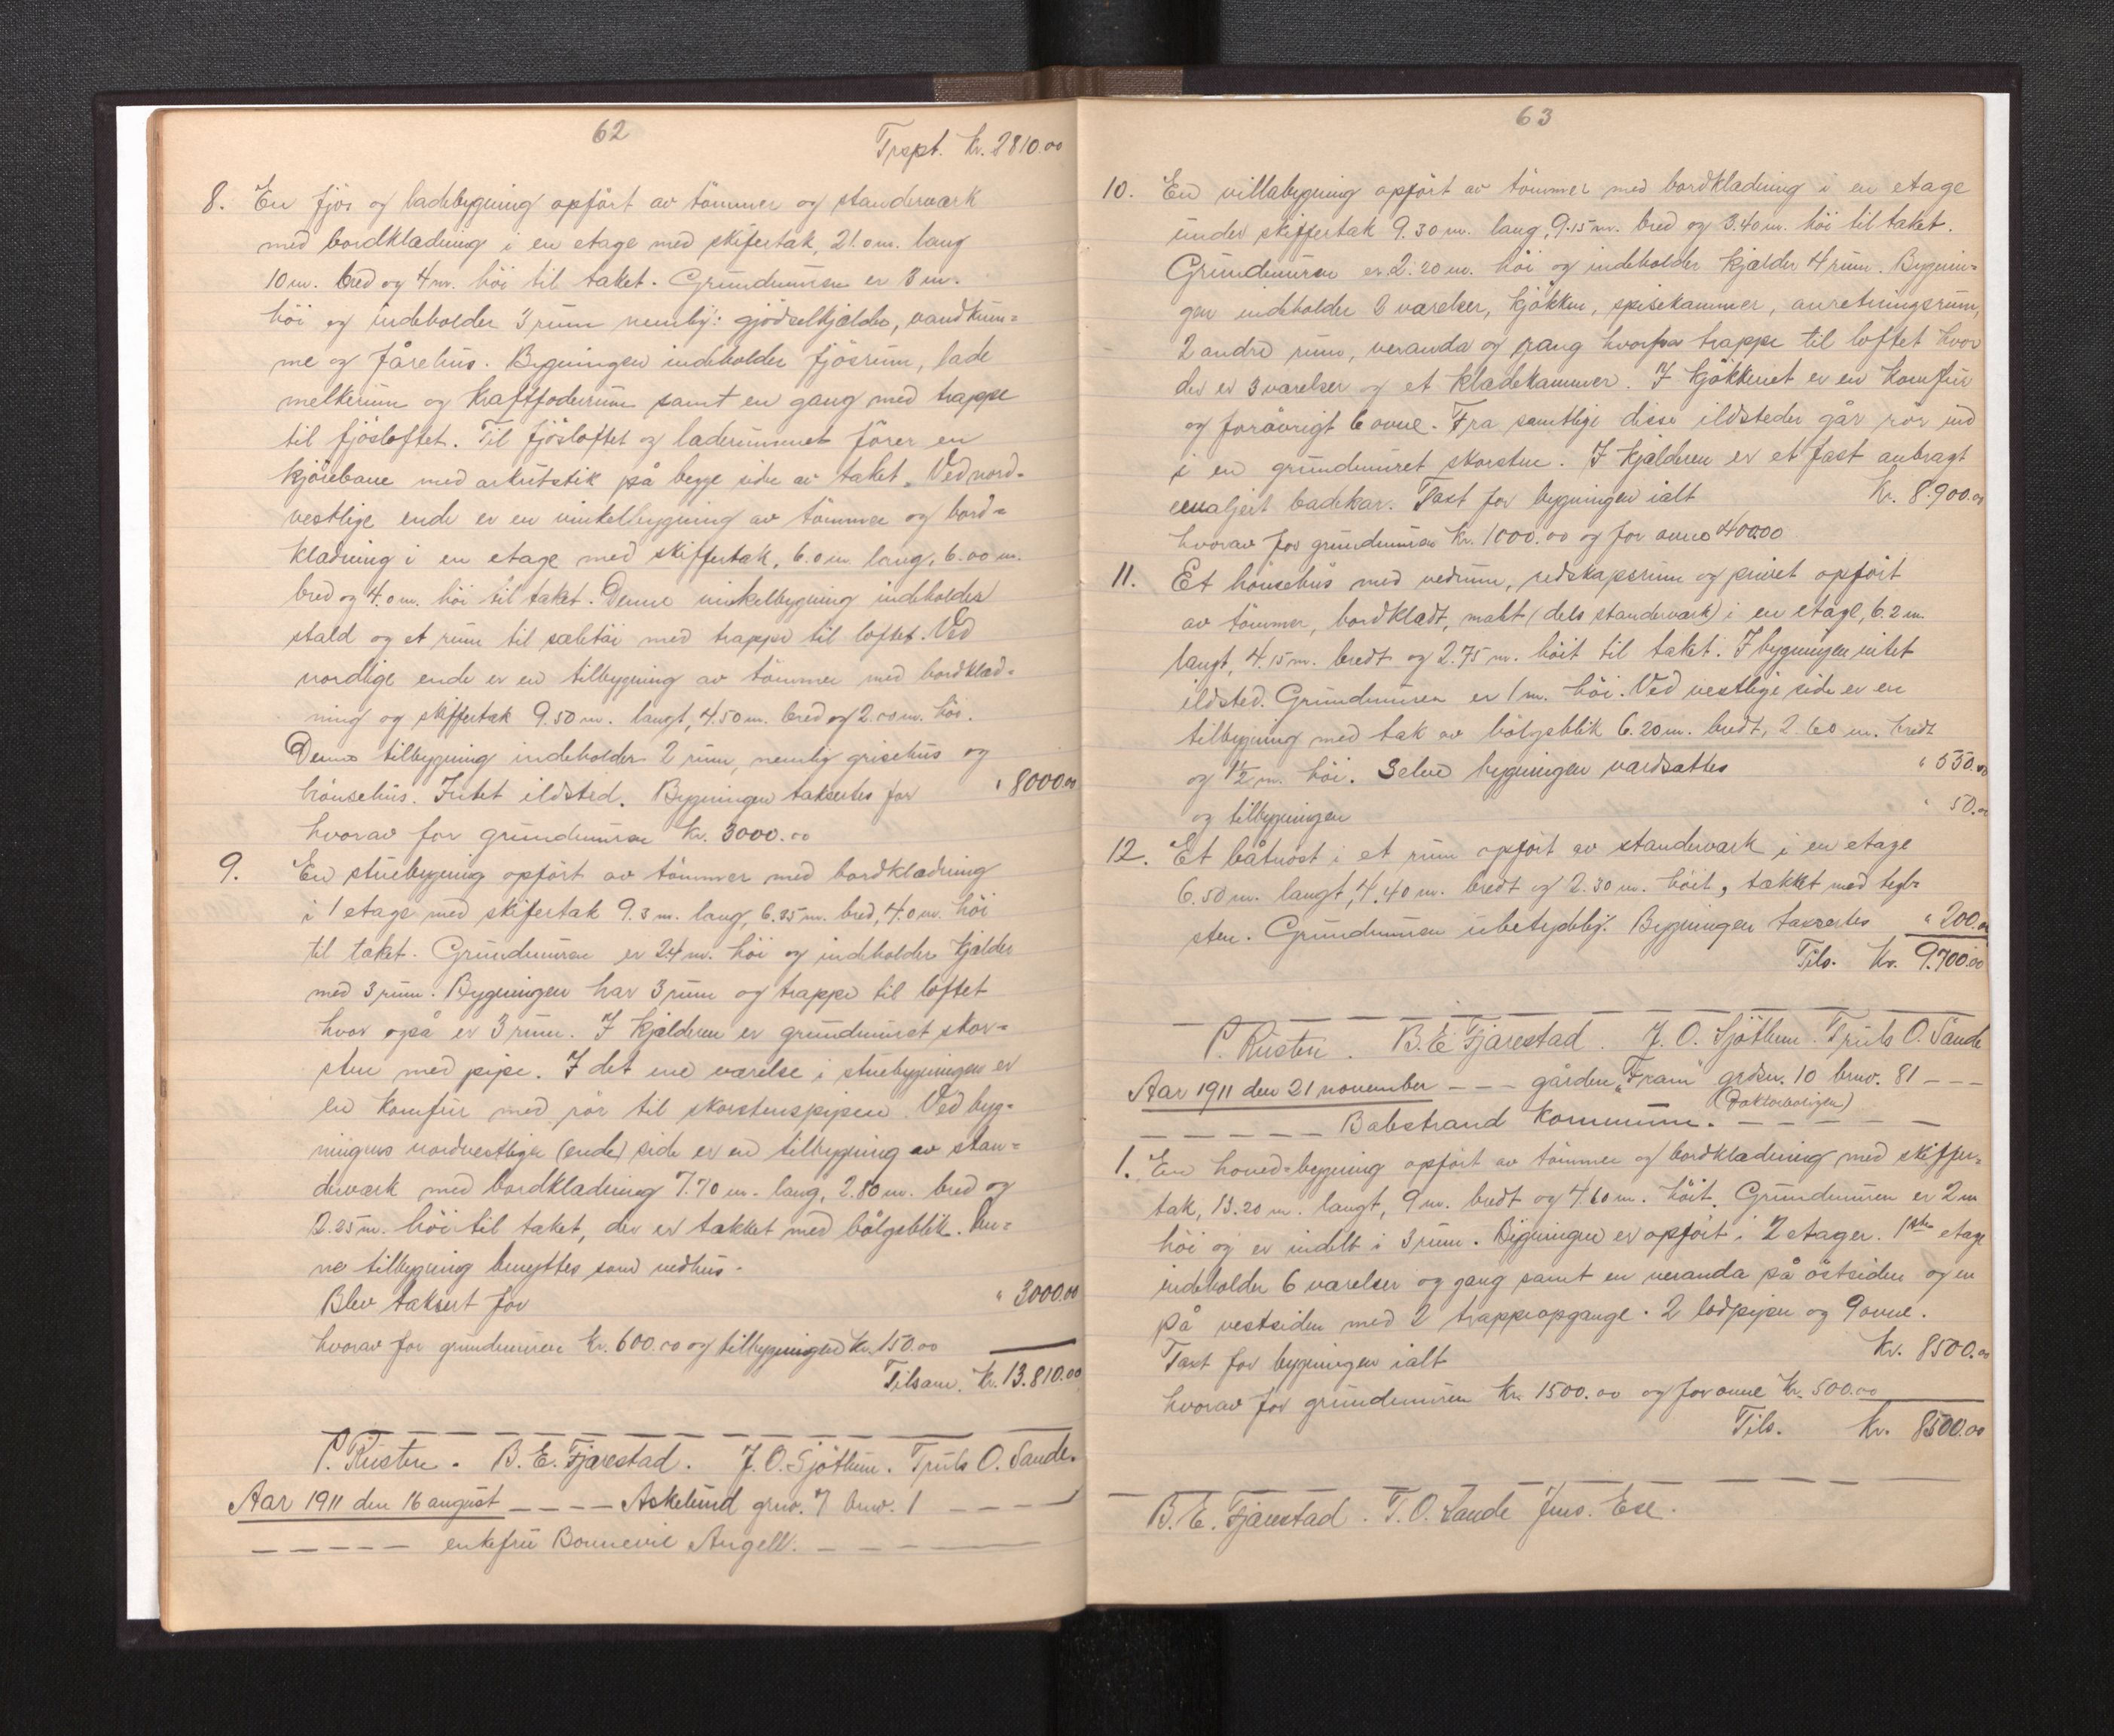 62
Trspt. Kr. 2810.00
8. En fjös og ladebygning opfört av tömmer og standerværk
med bordklædning i en etage med skifertak, 21.0 m. lang
10 m. bred og 4 m. höi til taket. Grundmuren er 3 m.
höi og indeholder 3 rum nemlig: gjödselkjælder, vandkum=
me og fårehus. Bygningen indeholder fjösrum, lade
melkerum og kraftfoderrum samt en gang med trappe
til fjösloftet. Til fjösloftet og laderummet förer en
kjörebane med arkutstik på begge sider av taket. Ved nord-
vestlige ende er en vinkelbygning av tömmer og bord=
klædning i en etage med skiffertak, 6.0 m. lang, 6.00 m.
bred og 4.0 m. höi til taket. Denne vinkelbygning indeholder
stald og et rum til sæletöi med trappe til loftet. Ved
nordlige ende er en tilbygning av tömmer med bordklæd=
ning og skiffertak 9.50 m. langt, 4.50 m. bred og 2.00 m. höi.
Denne tilbygning indeholder 2 rum, nemlig grisehus og
hönsehus. Intet ildsted. Bygningen takseertes for " 8000.00
hvorav for grundmuren kr. 3000.00
9. En stuebygning opfört av tömmer med bordklædning
i 1 etage med skifertak 9.3 m. lang, 6.35 m. bred, 4.0 m. höi
til taket. Grundmuren er 2.4 m. höi og indeholder kjælder
med 3 rum. Bygningen har 3 rum og trappe til loftet
hvor også er 3 rum. I kjælderen er grundmuret skor=
sten med pipe. I det ene værelse i stuebygningen er
en komfur med rör til skorstenspipen. Ved byg=
ningens nordvestlige (ende) side er en tilbygning av stan=
derværk med bordklædning 7.70 m. lang, 2.80 m. bred og
2.25 m. höi til taket, der er tækket med bölgeblik. Den=
ne tilbygning benyttes som vedhus.
Blev taksert for " 3000.00
hvorav for grundmuren Kr. 600.00 og tilbygningen Kr. 150.00
Tilsam. Kr. 13.810.00
P. Risten. B. E. Fjærestad. J. O. Sjöthun. Truls O. Sande.
Aar 1911 den 16 august - - - - Askelund grnv. 7 brnv. 1 - - - -
- - - - - enkefru Bonnevie Angell. - - - -
63
10. En villabygning opfört av tömmer med bordklædning i en etage
under skiffertak 9.30 m. lang, 9.15 m. bred og 3.40 m. höi til taket.
Grundmuren er 2.20 m. höi og indeholder kjælder 4 rum. Bygnin=
gen indeholder 2 værelser, kjökken, spisekammer, anretningsrum,
2 andre rum, veranda og gang hvorfra trappe til loftet hvor
der er 3 værelser og et klædekammer. I kjökkenet er en komfur
og foråvrigt 6 ovne. Fra samtlige disse ildsteder går rör ind
i en grundmuret skorsten. I kjælderen er et fast anbragt
emaljert badekar. Taxt for bygningen ialt Kr. 8.900.00
hvorav for grundmuren Kr. 1000.00 og for ovne 400.00
11. Et hönsehus med vedrum, redskapsrum og privet opfört
av tömmer, bordklædt, malt (dels standerværk) i en etage, 6.2 m.
langt, 4.15 m. bredt og 2.75 m. höit til taket. I bygningen intet
ildsted. Grundmuren er 1 m. höi. Ved vestlige side er en
tilbygning med tak av bölgeblik 6.20 m. bredt, 2.60 m. bredt
og 1½ m. höi. Selve bygningen værdsattes " 550.00
og tilbygningen " 50.00
12. Et båtnöst i et rum opfört av standerværk i en etage
6.50 m. langt, 4.40 m. bredt og 2.30 m. höit, tækket med tegl=
sten. Grundmuren ubetydelig. Bygningen taxsertes " 200.00
Tils. Kr. 9.700.00
P. Risten. B. E. Fjærestad. J. O. Sjöthun. Truls O. Sande
Aar 1911 den 21 november - - - gården "Fram" grdsn. 10 brnv. 81 - - -
(Doktorboligen)
- - - - - Balestrand Kommune. - - - - -
1. En hoved=bygning opfört av tömmer og bordklædning med skiffer=
tak, 13.20 m. langt, 9 m. bredt og 4.60 m. höit. Grundmuren er 2 m
höi og er indelt i 3 rum. Bygningen er opfört i 2 etager. 1ste etage
indeholder 6 værelser og gang samt en veranda på östsiden og en
på vestsiden med 2 trappeopgange. 2 lodpiper og 9 ovne.
Taxt for bygningen ialt Kr. 8500.00
hvorav for grundmuren Kr. 1500.00 og for ovne Kr. 500.00
Tils. Kr. 8500.00
B. E. Fjærestad. T. O. Sande Jms. Ese.